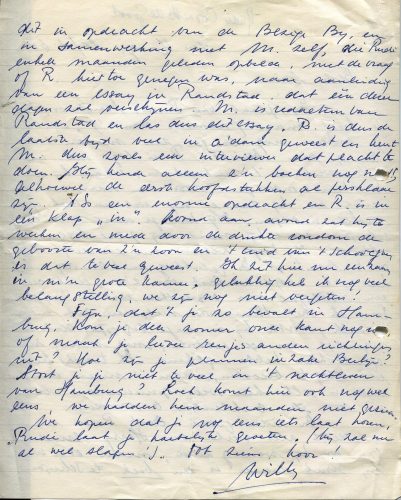 dit in opdracht van de Bezige Bij, en
in samenwerking met M. zelf, die Rudi
enkele maanden geleden opbelde, met de vraag
of R. hiertoe genegen was, naar aanleiding
van een essay in Randstad, dat één dezer
dagen zal verschijnen. M. is redacteur van
Randstad en las dus dit essay. R. is dus de
laatste tijd veel in A'dam geweest en kent
M. dus zoals een interviewer dat placht te
doen. Hij kende alleen z'n boeken nog niet,
behalve de eerste hoofdstukken
zijn. 't Is een enorme opdracht en R. is in
één klap „in". Avond aan avond zat hij te
werken en mede door de drukte rondom de
geboorte van z'n zoon en 't eind van 't schooljaar
is dat te veel geweest. Ik zit hier nu eenzaam
in m'n grote kamer, gelukkig heb ik nog veel
belangstelling, we zijn nog niet vergeten!
Fijn, dat 't je zo bevalt in Ham-
burg. Kom je deze zomer onze kant nog op
of maak je liever reisjes andere richtingen
uit? Hoe zijn je plannen inzake
Stort je je niet te veel in 't nachtleven
van Hamburg? Koch komt hier ook nog wel
eens we hadden hem maanden niet gezien.
We hopen dat je nog eens iets laat horen,
Rudi laat je hartelijk groeten. (hij zal nu
al wel slapen!) Tot ziens, hoor!
Willy